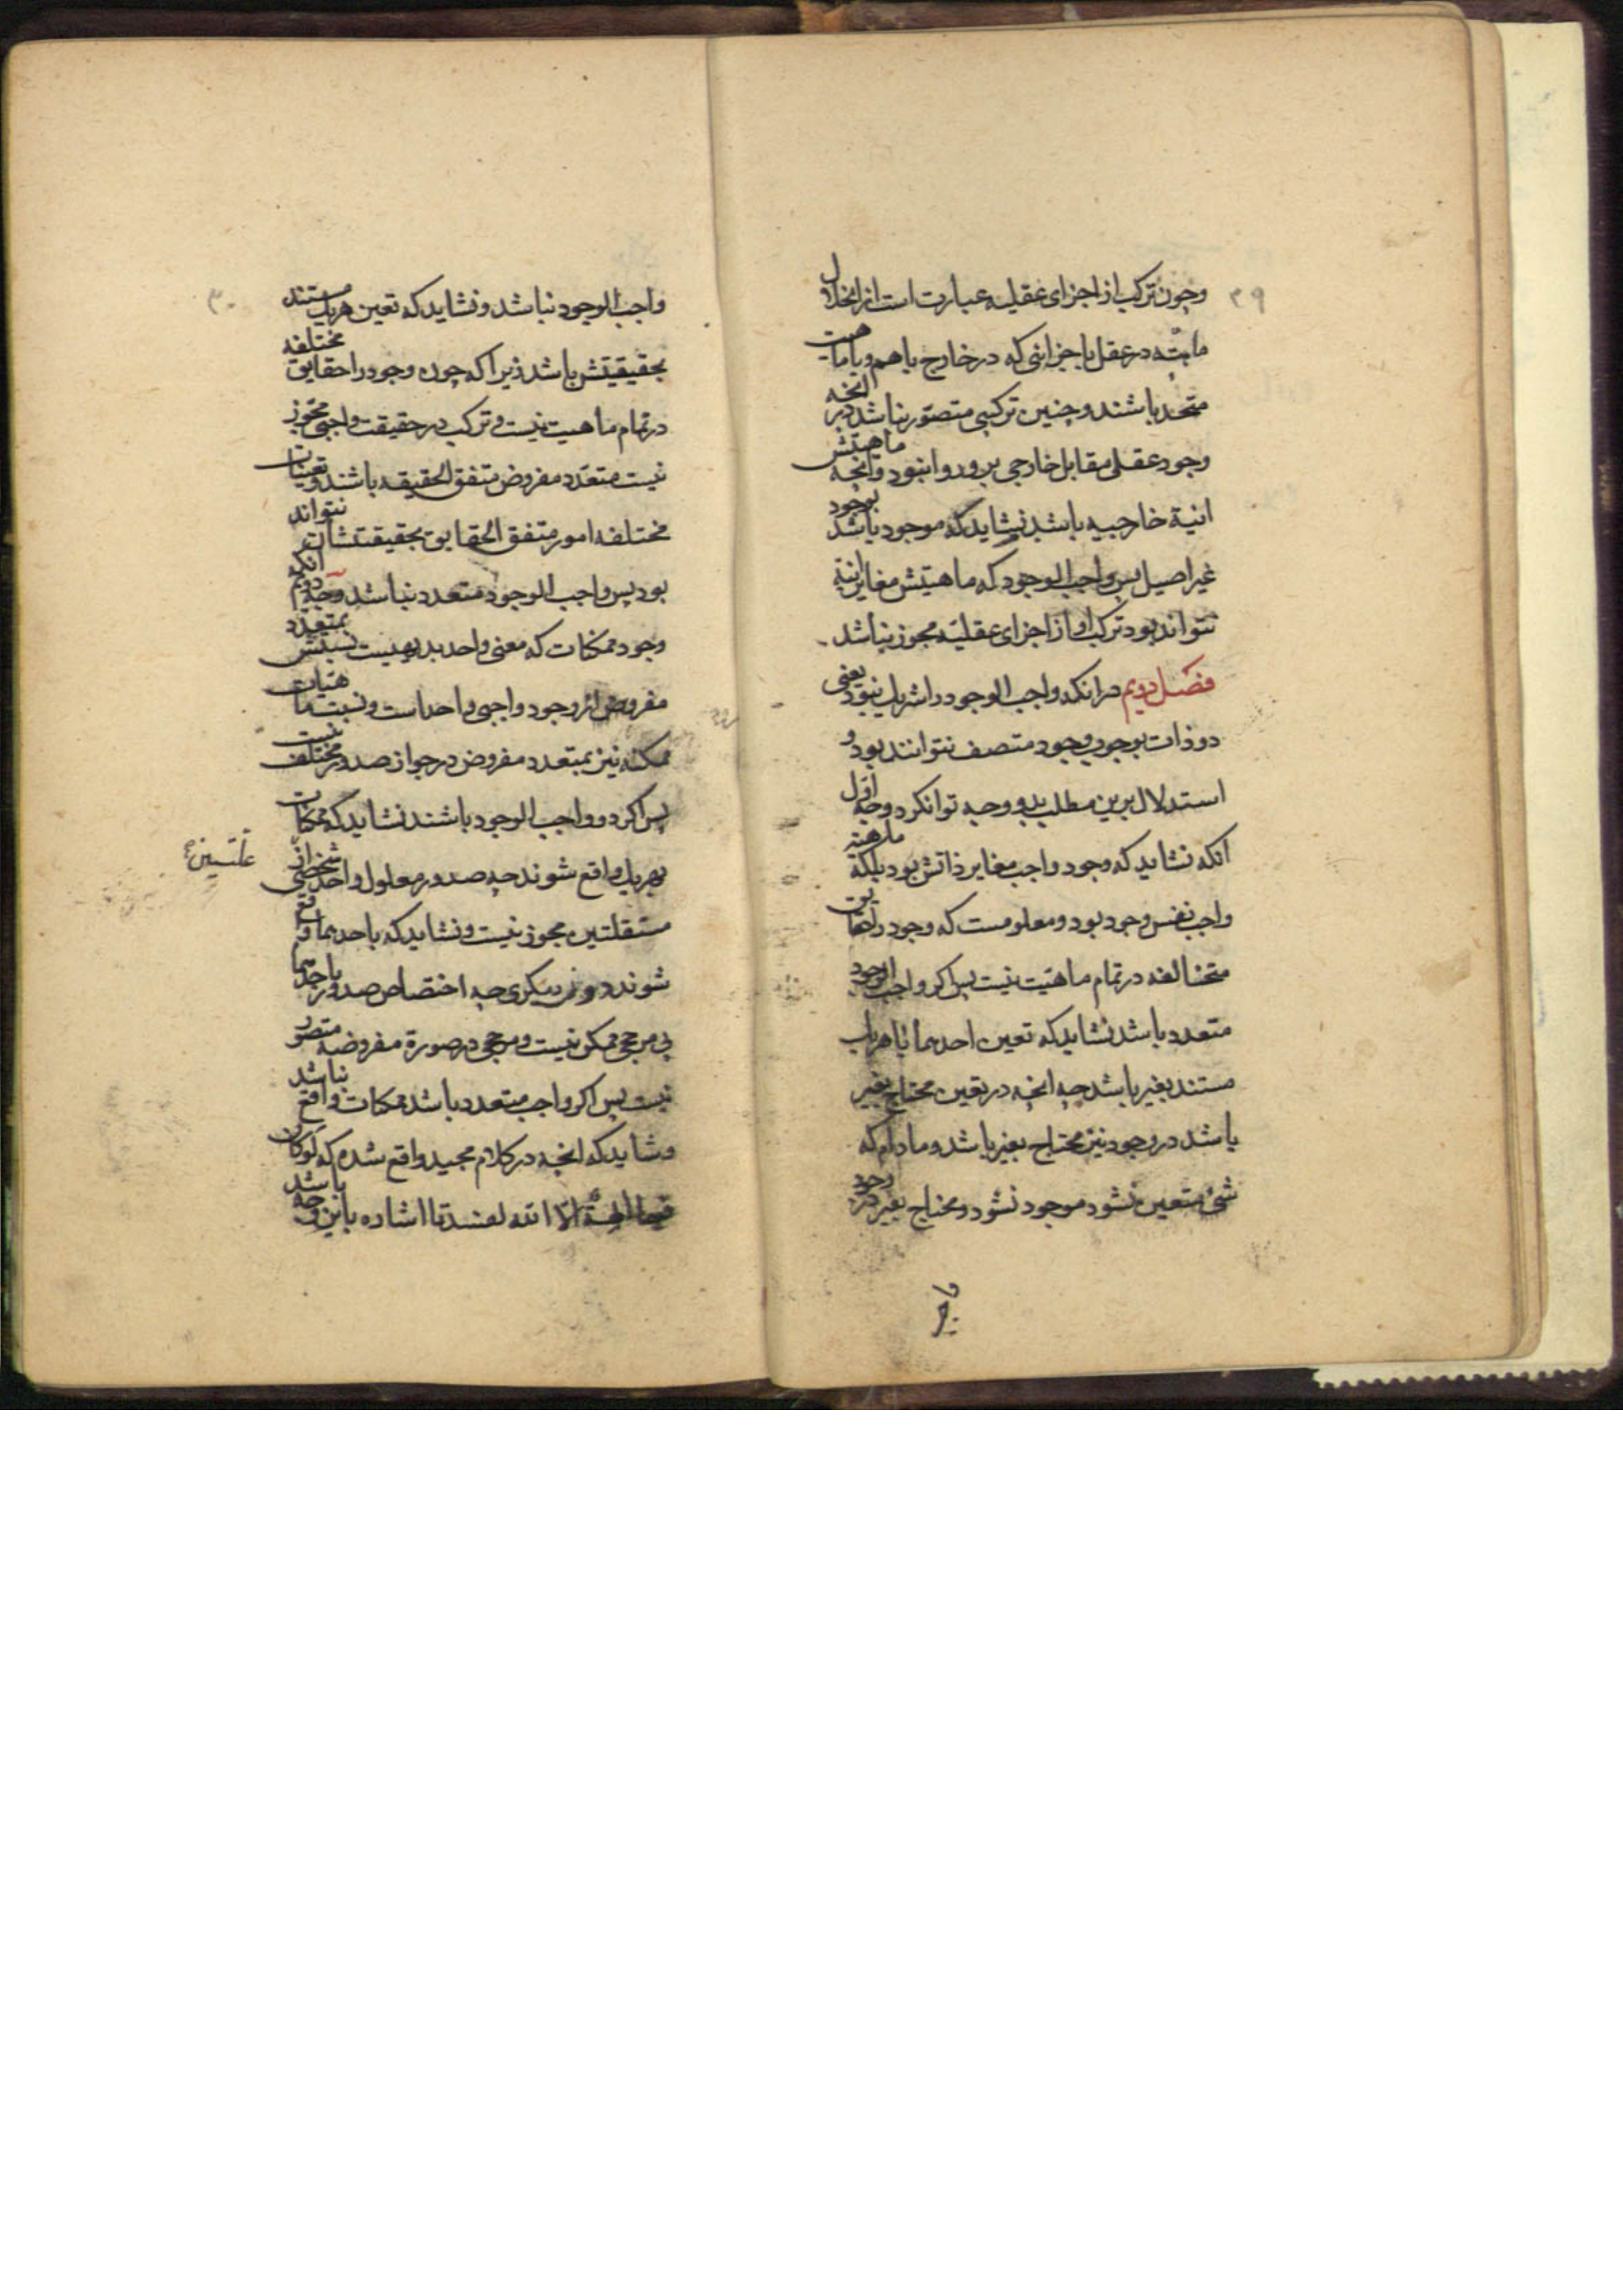 ۲۹
وچون ترکب از اجزای عقلیه عبارت است از انحلال
ماهیته در عقل باجزائی که در خارج باهم و با ماهیت
متحد باشند و چنین ترکبی متصور نباشد در انچه
وجود عقلی مقابل خارجی برو روا نبود وانچه ماهیتش
انیة خارجیه باشد نشاید که موجود باشد بوجود
غیر اصیل پس واجب الوجود که ماهیتش مغایر انیة
نتواند بود ترکب او از اجزای عقلیه مجوز نباشد
فصل دویم در انکه واجب الوجود را شریک نبود یعنی
دو ذات بوجوب وجود متصف نتوانند بود و
استدلال برین مطلب بدو وجه توانکرد وجه اول
انکه نشاید که وجود واجب مغایر ذاتش بود بلکه ماهیته
واجب نفس وجود بود و معلومست که وجود را حقایق
متخالفه در تمام ماهیت نیست پس اکر واجب الوجود
متعدد باشد نشاید که تعین احدهما یا هریک
مستند بغیر باشد چه انچه در تعین محتاج بغیر
باشد در وجود نیز محتاج بغیر باشد و مادام که
شئ متعین نشود موجود نشود و محتاج بغیر در وجود
۳۰
واجب الوجود نباشد و نشاید که تعین هریک مستند
بحقیقیتش باشد زیرا که چون وجود را حقایق مختلفه
در تمام ماهیت نیست و ترکب در حقیقت واجبی مجوز
نیست متعدد مفروض متفق الحقیقه باشند و تعینات
مختلفه امور متفق الحقایق بحقیقتشان نتواند
بود پس واجب الوجود متعدد نباشد وجه دویم انکه
وجود ممکنات که معنی واحد بدیهیست نسبتش بمتعدد
مفروض از وجود واجبی واحد است و نسبت ماهیات
ممکنه نیز بمتعدد مفروض در جواز صدور مختلف نیست
پس اکر دو واجب الوجود باشند نشاید که ممکنات
بهریک واقع شوند چه صدور معلول واحد شخصی از
علتین
مستقلتین مجوز نیست و نشاید که باحدهما واقع
شوند دون دیکری چه اختصاص صدور باحدهما
بی مرجحی ممکن نیست و مرجحی در صورة مفروضه متصور
نیست پس اکر واجب متعدد باشد ممکنات واقع نباشد
و شاید که انچه در کلام مجید واقع شده که لوکان
فیهما الهة الا الله لفسدتا اشاره باین وجه باشد